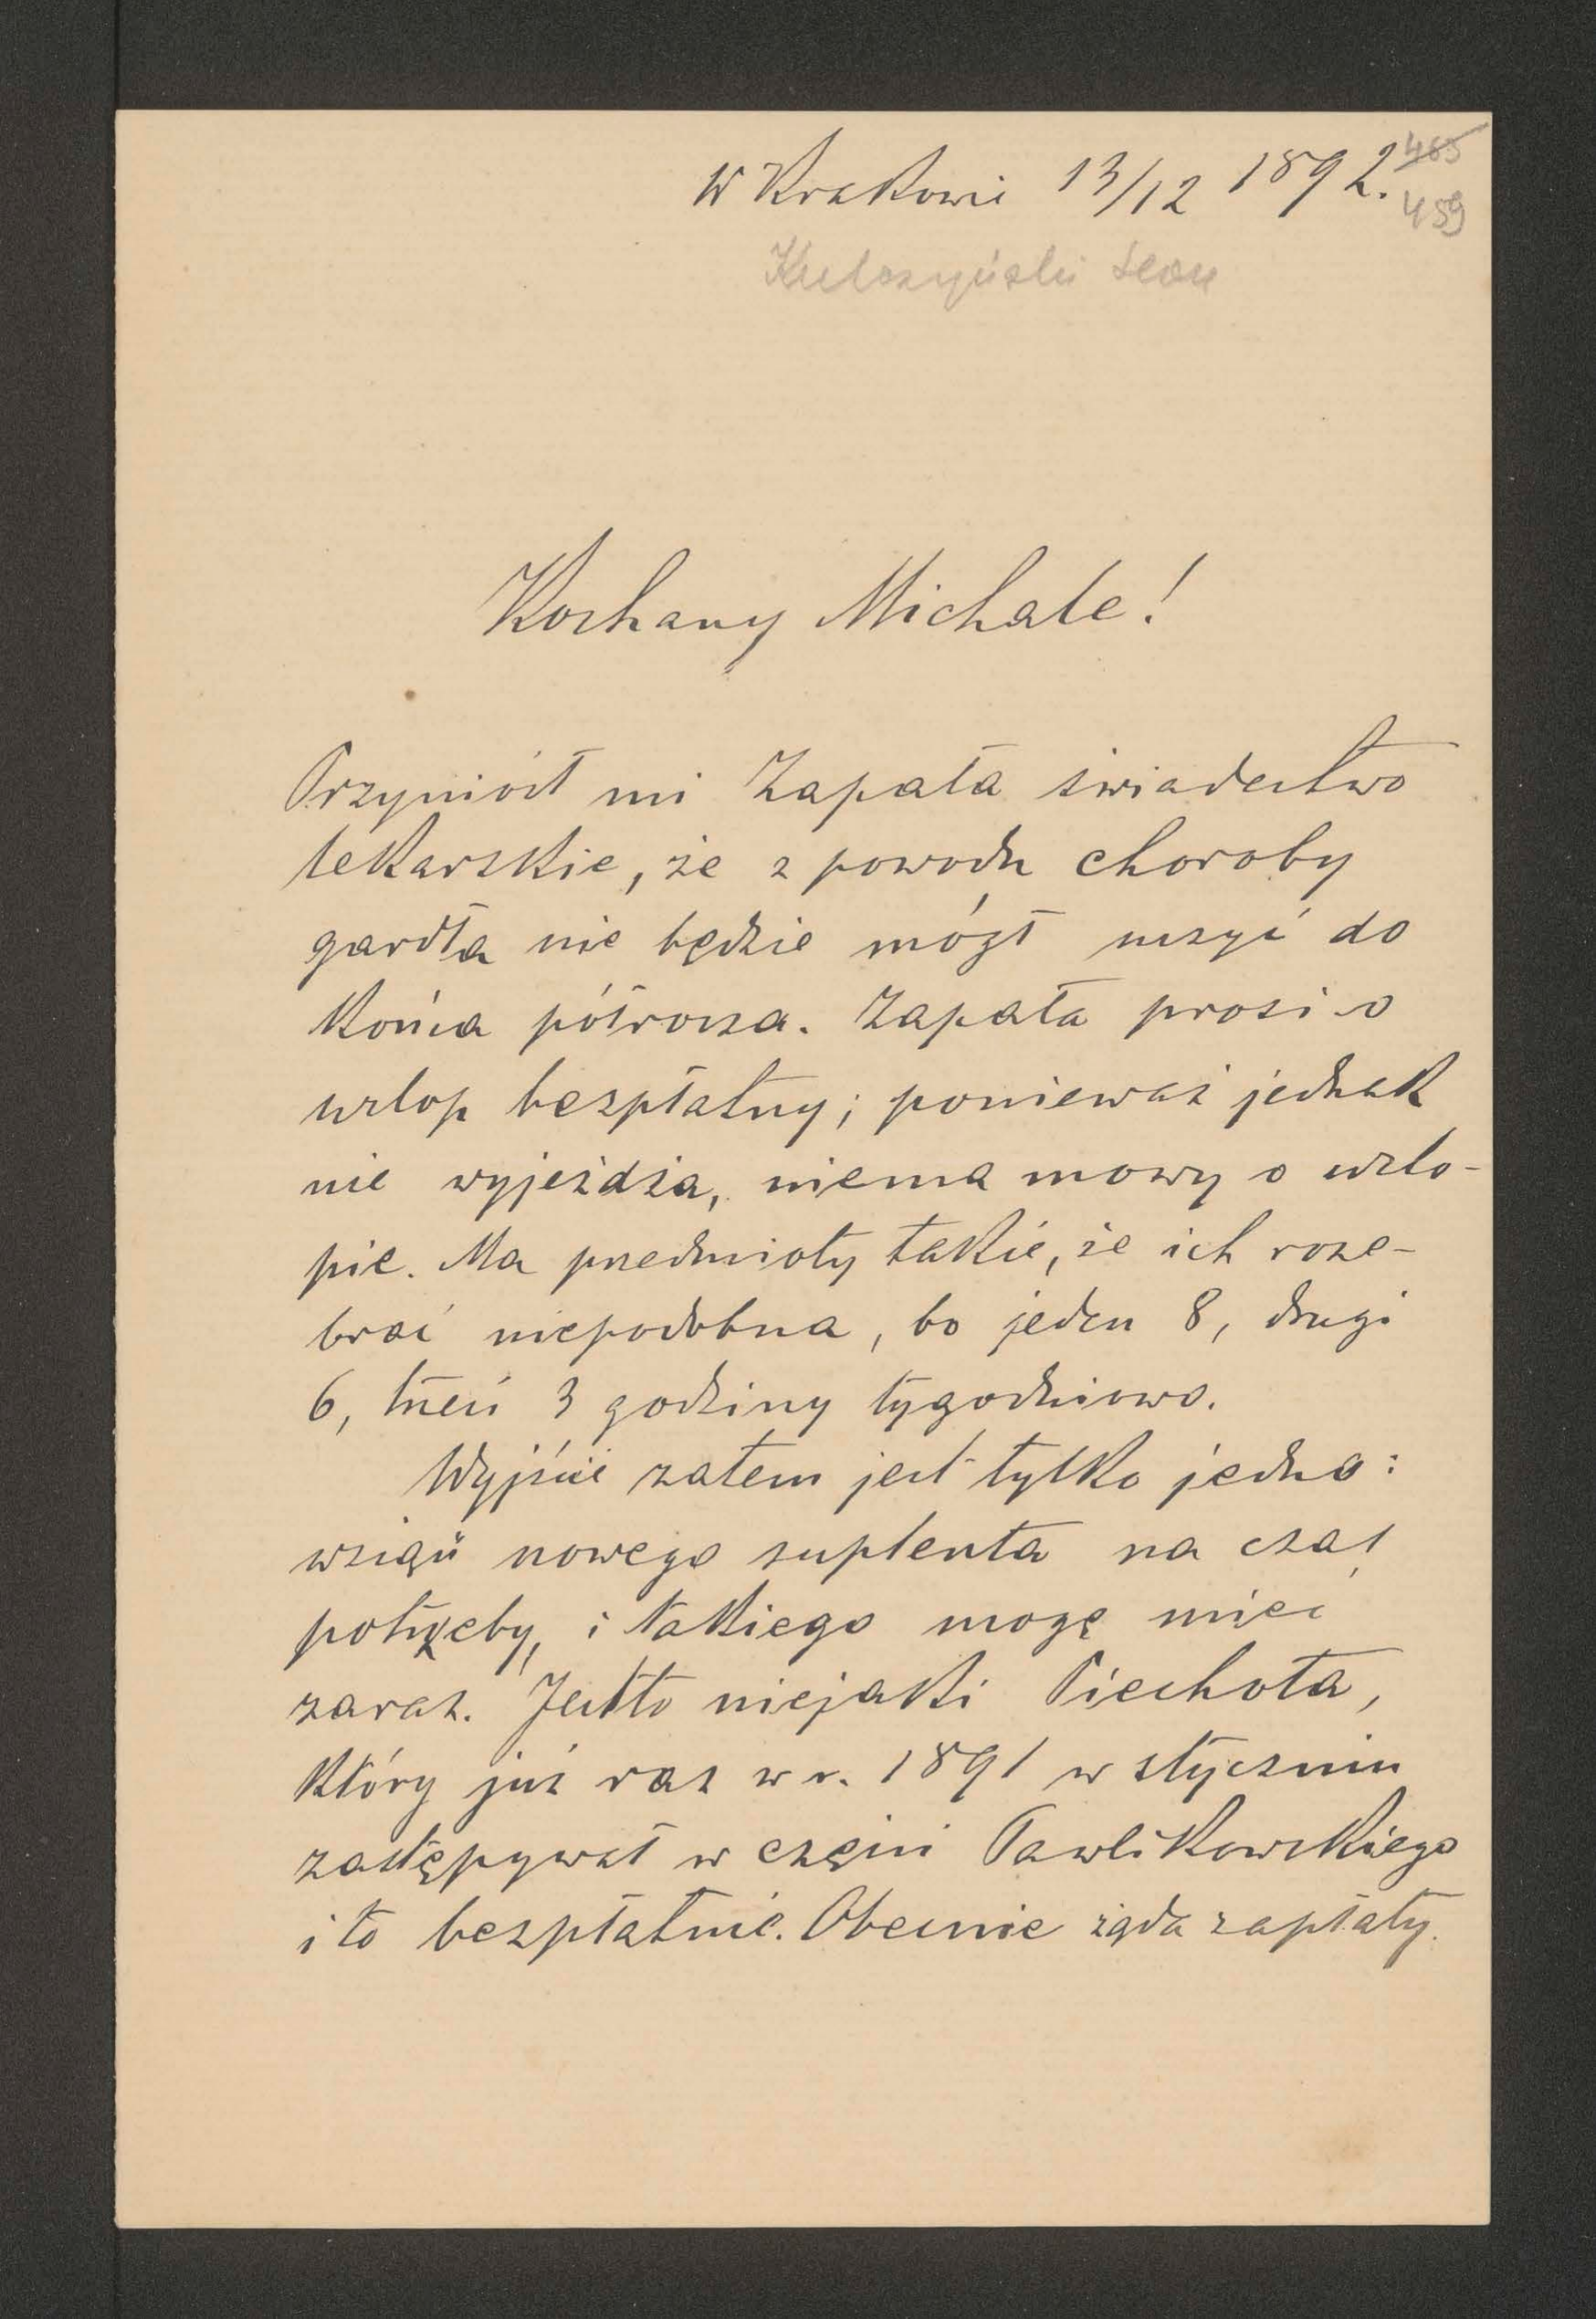 W Krakowie 13/12 1892.
485
459
Kulczyński Leon
Kochany Michale!
Przyniósł mi Zapała świadectwo
lekarskie, że z powodu choroby
gardła nie będzie mógł uczyć do
końca półrocza. Zapała prosi o
urlop bezpłatny; ponieważ jednak
nie wyjeżdża, niema mowy o urlo-
pie. Ma przedmioty takie, że ich roze-
brać niepodobna, bo jeden 8, drugi
6, trzeci 3 godziny tygodniowo.
Wyjście zatem jest tylko jedno:
wziąść nowego suplenta na czas
potrzeby, i takiego mogę mieć
zaraz. Jestto niejaki Piechota,
który już raz w r. 1891 w styczniu
zastępywał w części Pawlikowskiego
i to bezpłatnie. Obecnie żąda zapłaty.